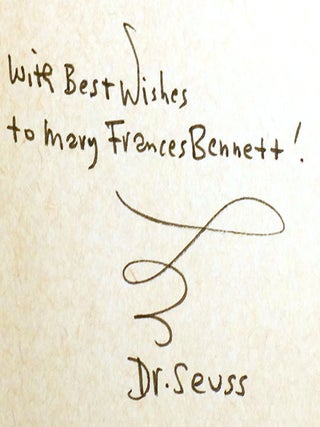 With Best Wishes
to Mary Frances Bennett!
Dr. Seuss